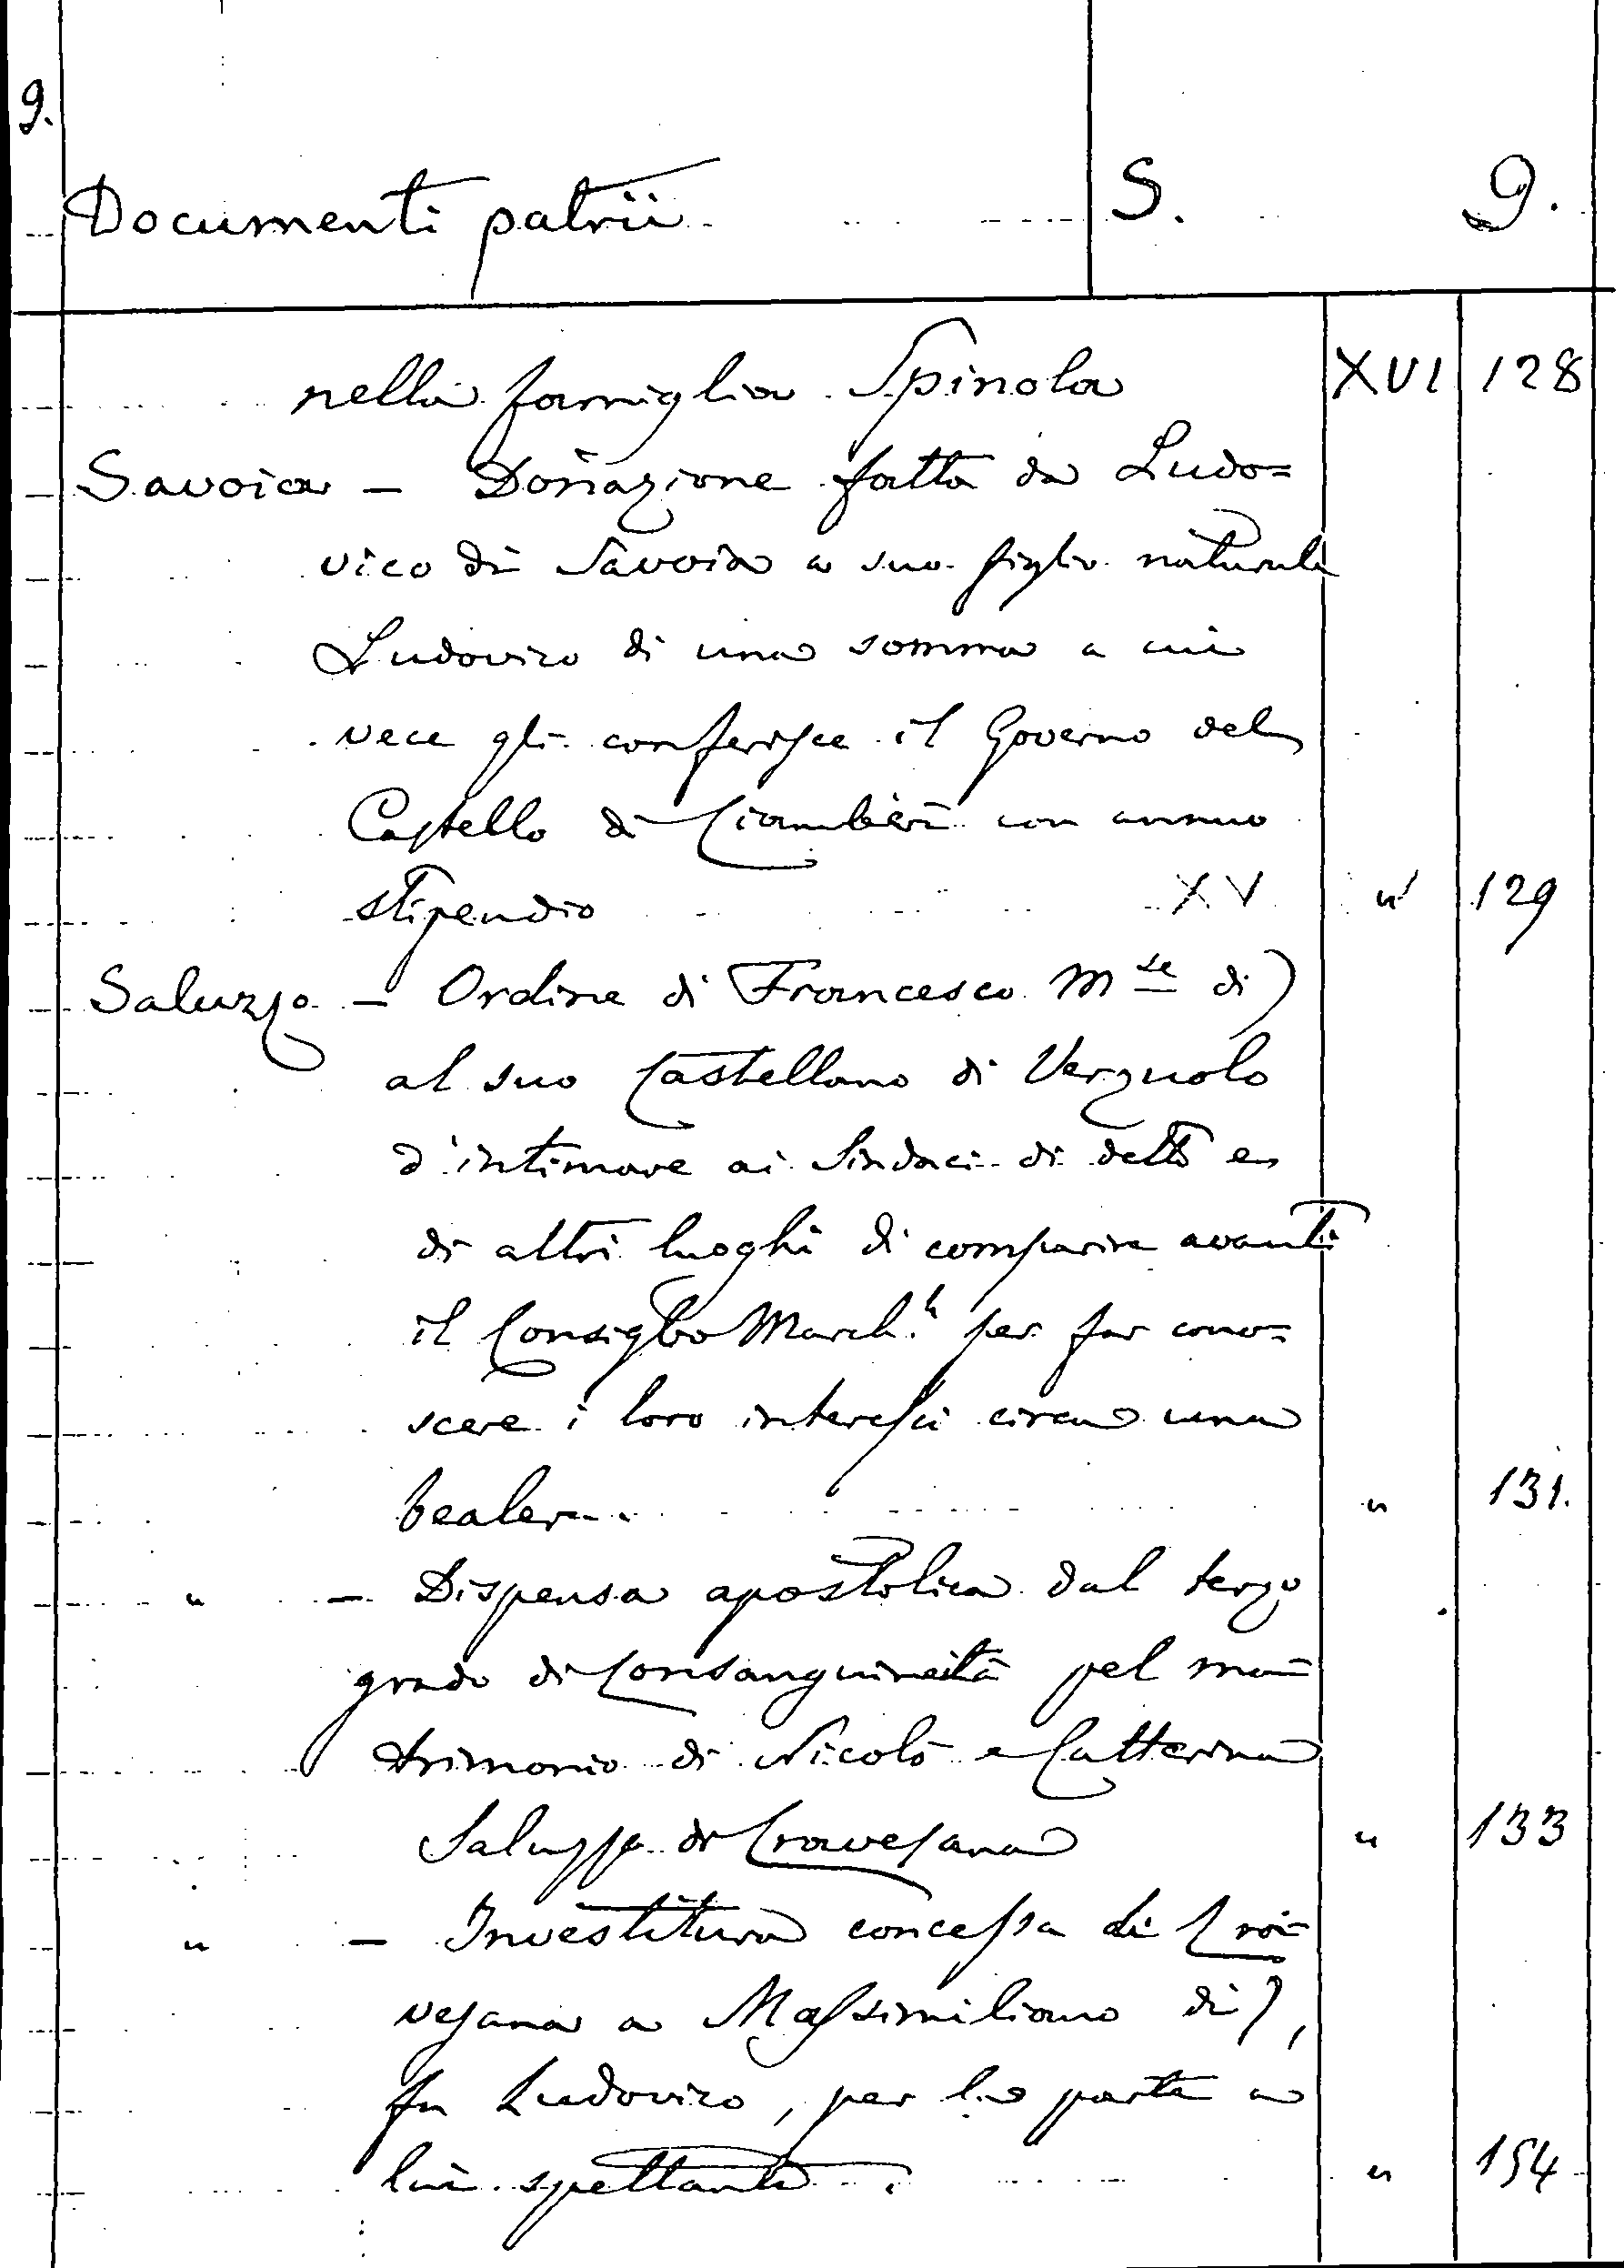 9.
Documenti patrii S. 9.
nella famiglia Spinola XVI 128
Savoia - Donazione fatta da Ludo=
vico di Savoia a suo figlio naturale
Ludovico di una somma a cui
vece gli conferisce il Governo del
Castello di Ciamberì con annuo
stipendio XV " 129
Saluzzo - Ordine di Francesco Mse di)
al suo Castellano di Verzuolo
d'intimare ai Sindaci di detto e
di altri luoghi di comparire avanti
il Consiglio March.le per far cono=
scere i loro interessi circa una
bealera. " 131.
" - Dispensa apostolica dal terzo
grado di Consanguineità pel ma=
trimonio di Nicolò e Catterina
Saluzzo di Cravesana " 133
" - Investitura concessa di Cra=
vesana a Massimiliano di),
fu Ludovico, per la parte a
lui spettante. " 154